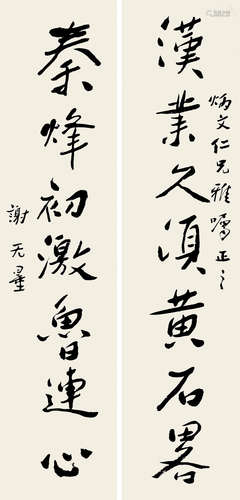 漢業久須黃石畧
炳文仁兄雅囑正之
秦烽初激魯連心
謝无量